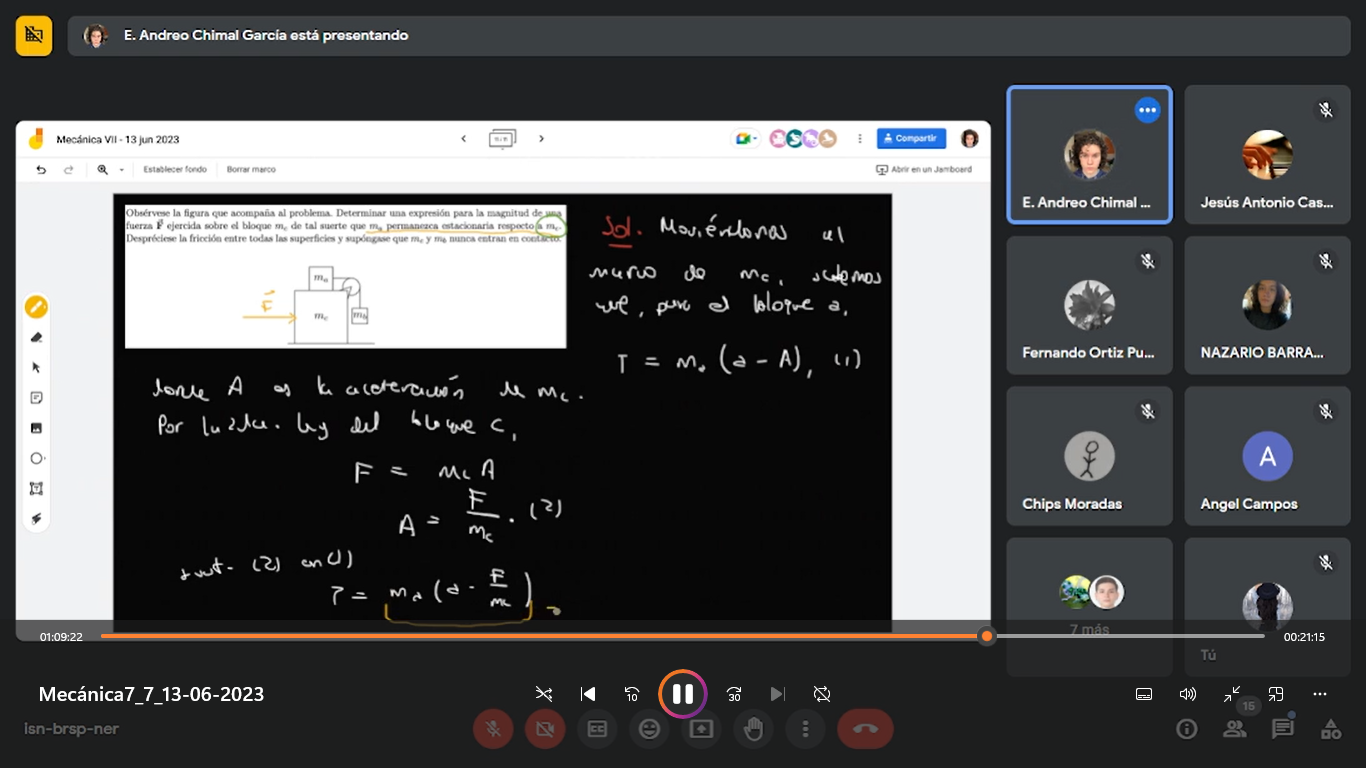 E. Andreo Chimal García está presentando
Mecánica VII - 13 jun 2023
Compartir
Establecer fondo
Borrar marco
Abrir en un Jamboard
Obsérvese la figura que acompaña al problema. Determinar una expresión para la magnitud de una
fuerza F⃗ ejercida sobre el bloque mc de tal suerte que ma permanezca estacionaria respecto a mc.
Despréciese la fricción entre todas las superficies y supóngase que mc y mb nunca entran en contacto.
ma
F⃗
mc
mb
Sol. Moviéndonos al
marco de mc, sabemos
que, para el bloque a,
T = ma (a - A), (1)
donde A es la aceleración de mc.
Por la 2da. ley del bloque c,
F = mc A
A = F/mc. (2)
sust. (2) en (1)
T = ma (a - F/mc)
E. Andreo Chimal ...
Jesús Antonio Cas...
Fernando Ortiz Pu...
NAZARIO BARRA...
Chips Moradas
A
Angel Campos
7 más
Tú
01:09:22
00:21:15
Mecánica7_7_13-06-2023
10
30
isn-brsp-ner
15